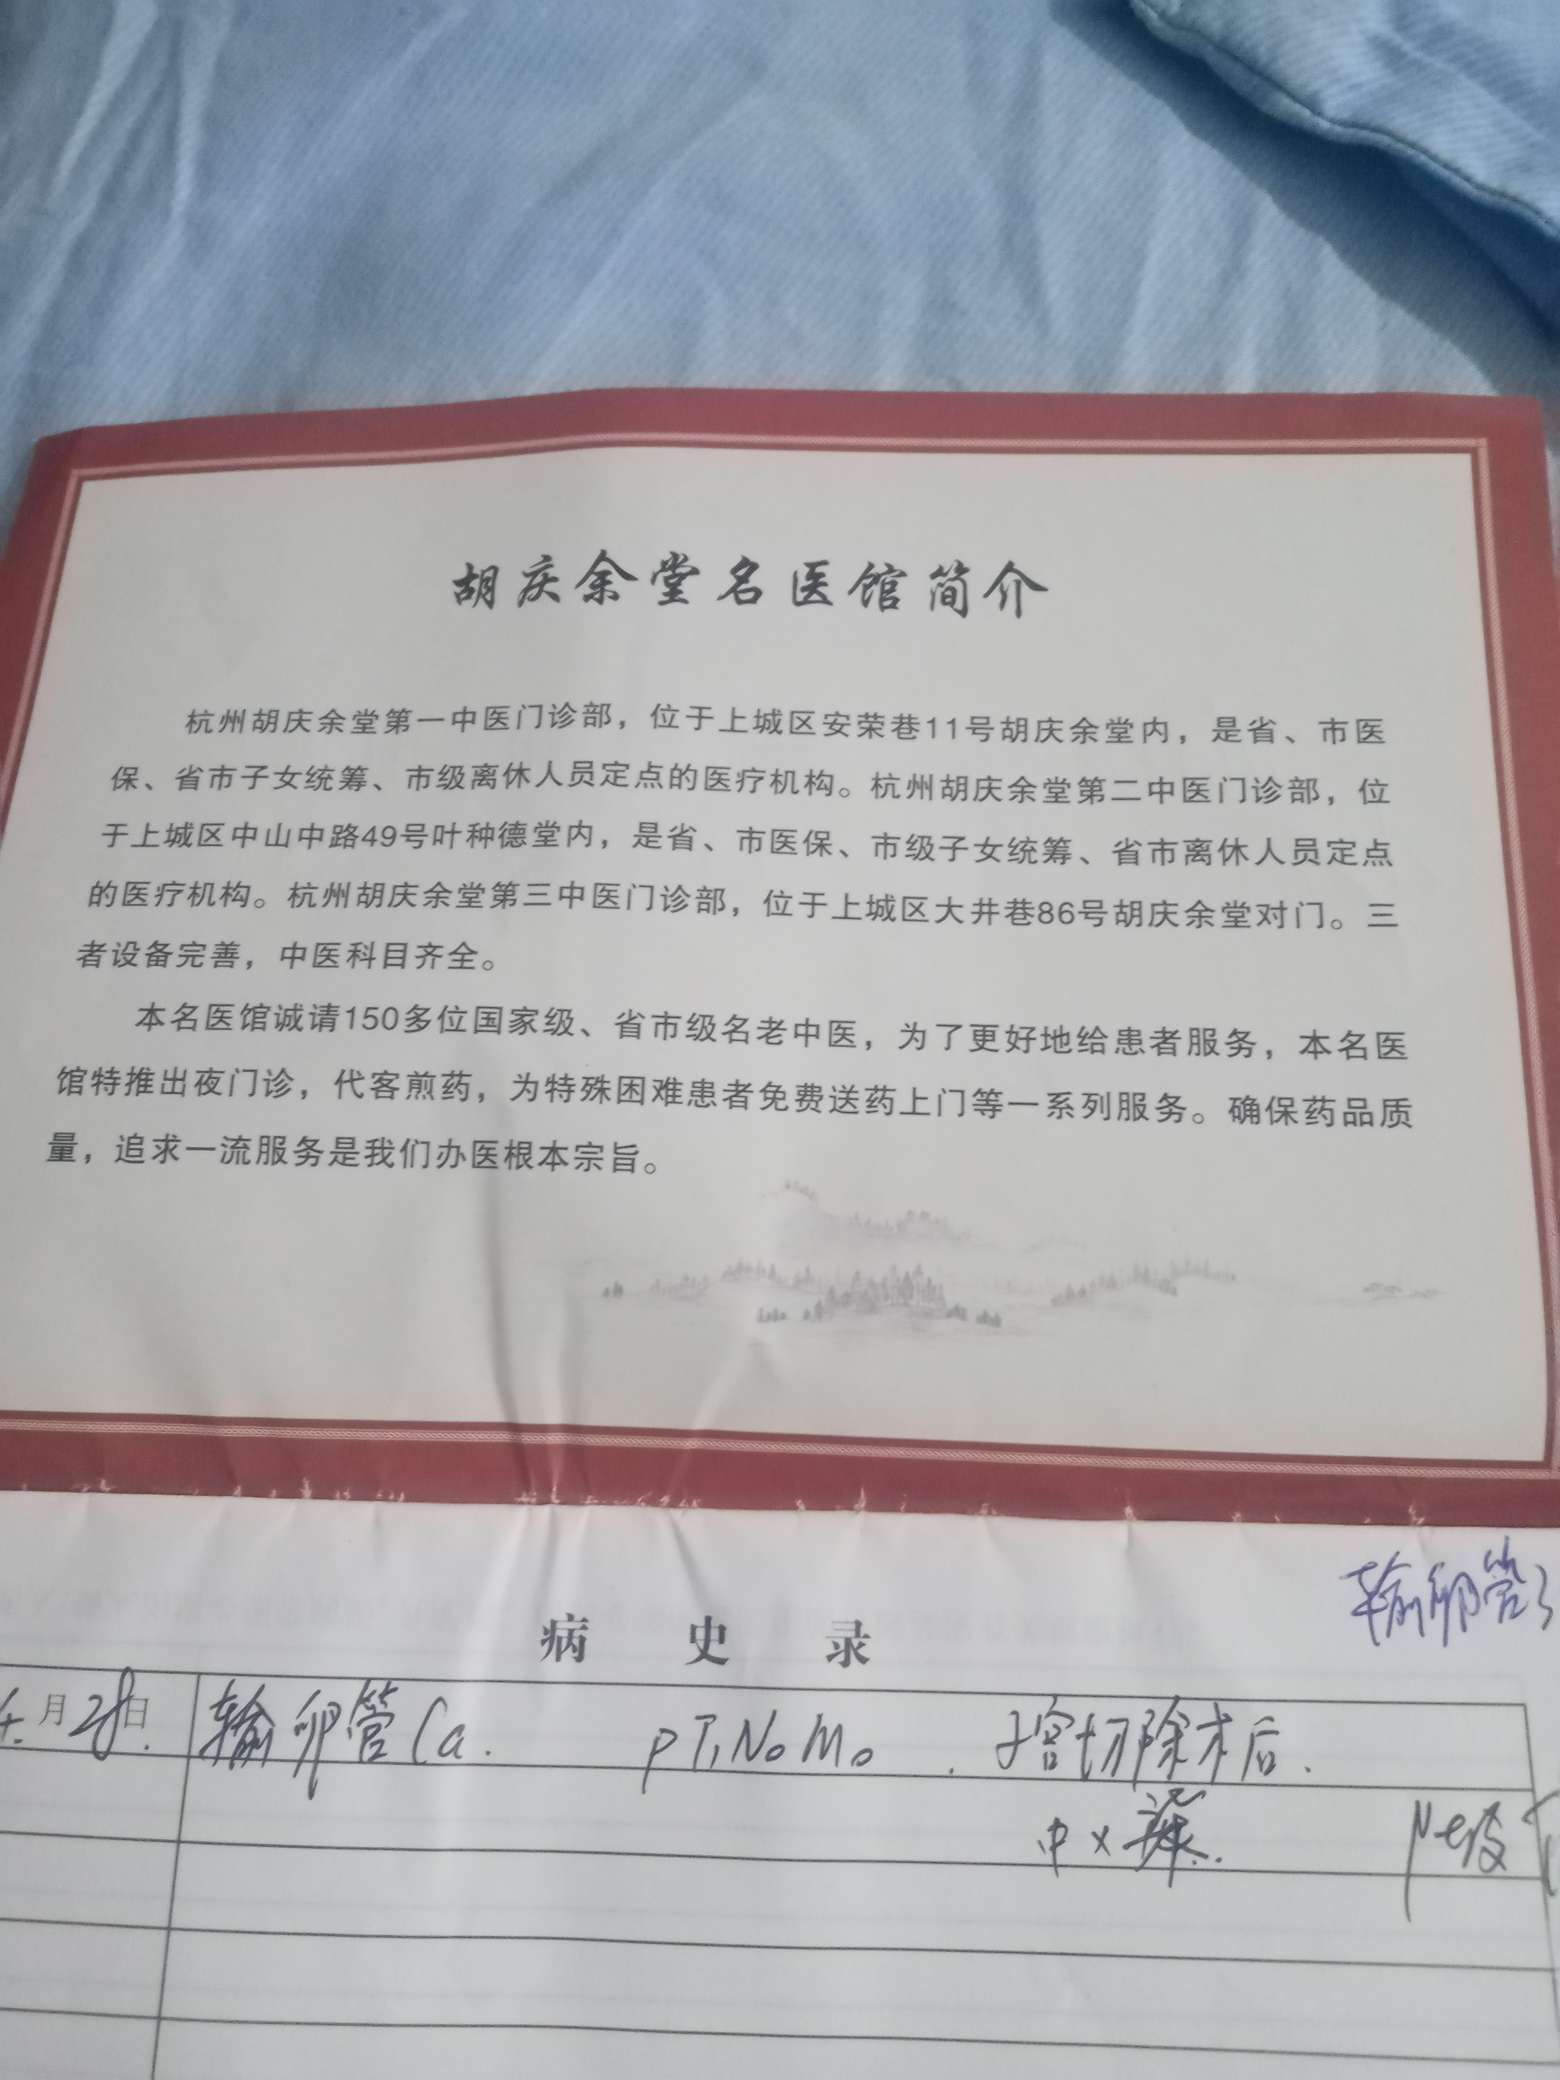 胡庆余堂名医馆简介
杭州胡庆余堂第一中医门诊部，位于上城区安荣巷11号胡庆余堂内，是省、市医
保、省市子女统筹、市级离休人员定点的医疗机构。杭州胡庆余堂第二中医门诊部，位
于上城区中山中路49号叶种德堂内，是省、市医保、市级子女统筹、省市离休人员定点
的医疗机构。杭州胡庆余堂第三中医门诊部，位于上城区大井巷86号胡庆余堂对门。三
者设备完善，中医科目齐全。
本名医馆诚请150多位国家级、省市级名老中医，为了更好地给患者服务，本名医
馆特推出夜门诊，代客煎药，为特殊困难患者免费送药上门等一系列服务。确保药品质
量，追求一流服务是我们办医根本宗旨。
输卵管
病史录
月28日 输卵管Ca. pT1N0M0. 子宫切除术后.